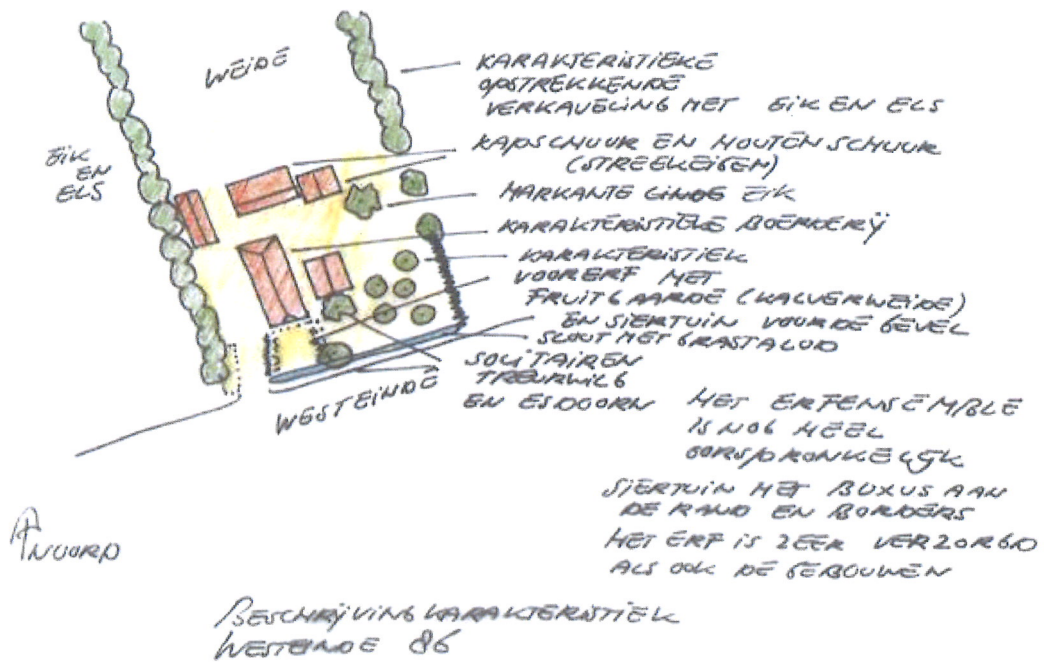 WEIDE
EIK
EN
ELS
KARAKTERISTIEKE
OPSTREKKENDE
VERKAVELING MET EIK EN ELS
KAPSCHUUR EN HOUTEN SCHUUR
(STREEKEIGEN)
MARKANTE LINDE EIK
KARAKTERISTIEKE BOERDERIJ
KARAKTERISTIEK
VOORERF MET
FRUITGAARDE (KALVERWEIDE)
EN SIERTUIN VOOR DE GEVEL
SLOOT MET GRASTALUD
SOLITAIREN
TREURWILG
EN ESDOORN
WESTEINDE
HET ERFENSEMBLE
IS NOG HEEL
OORSPRONKELIJK
SIERTUIN MET BUXUS AAN
DE RAND EN BORDERS
HET ERF IS ZEER VERZORGD
ALS OOK DE GEBOUWEN
NOORD
BESCHRIJVING KARAKTERISTIEK
WESTEINDE 86